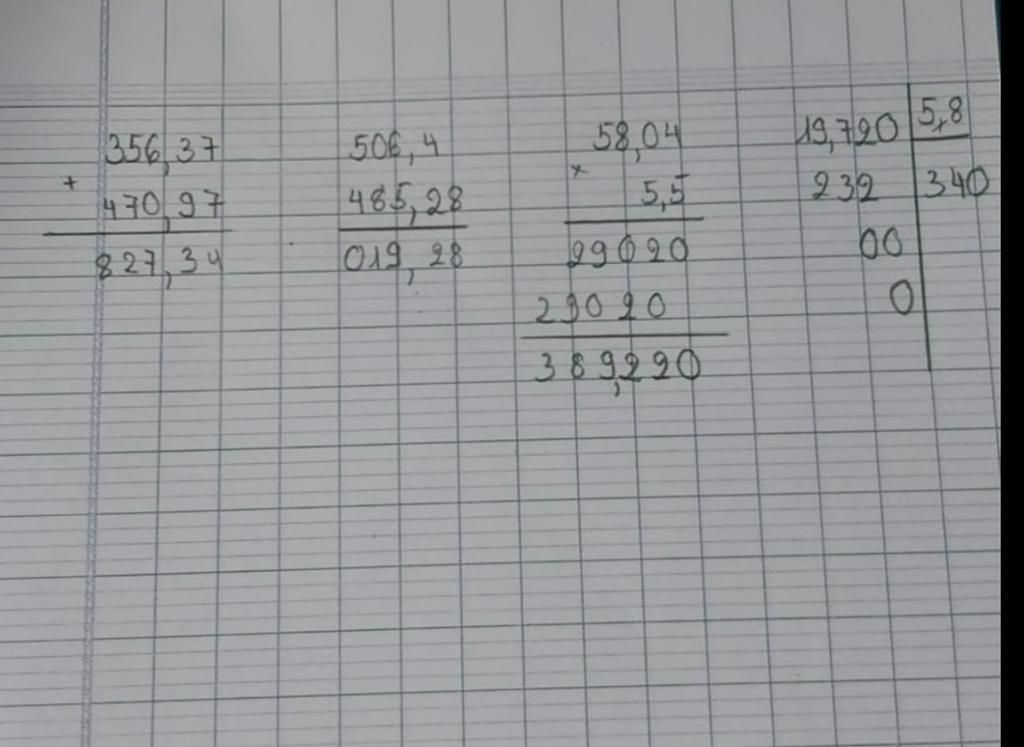 356,37
+
470,97
827,34
506,4
485,28
019,28
58,04
×
5,5
29020
29020
389,220
19,720 5,8
232 340
00
0